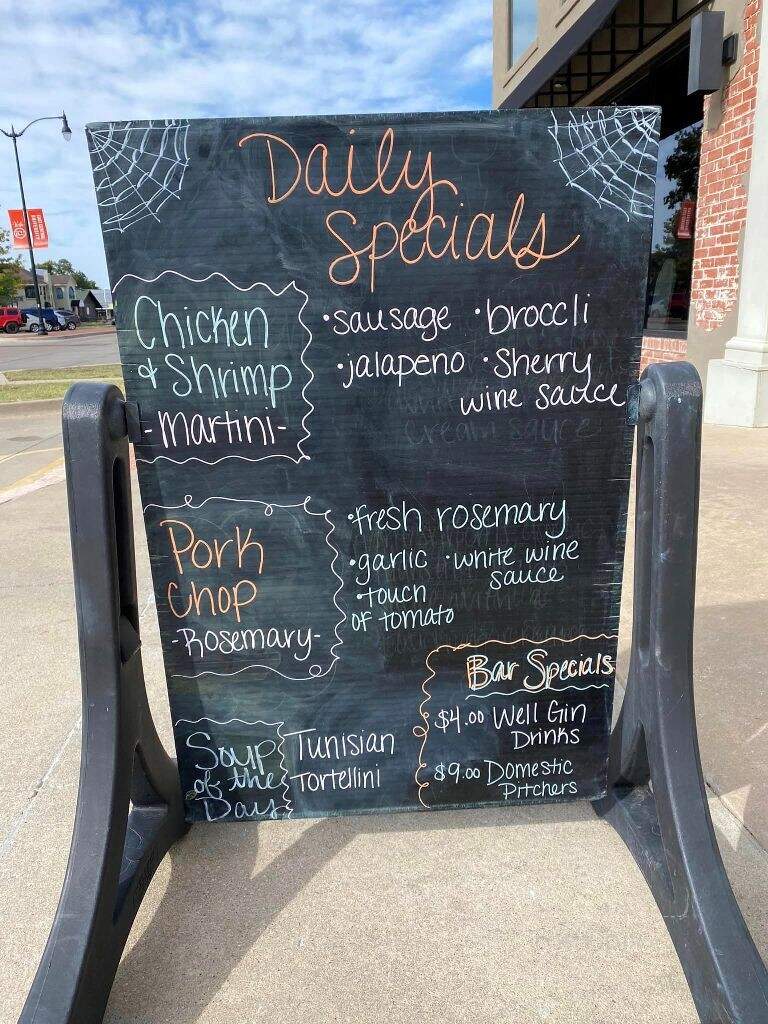 Daily
Specials
Chicken
& Shrimp
-Martini-
•sausage •broccli
•jalapeno •Sherry
wine sauce
cream sauce
Pork
Chop
-Rosemary-
•fresh rosemary
•garlic •white wine
sauce
•touch
of tomato
Soup
of the
Day
Tunisian
Tortellini
Bar Specials
$4.00 Well Gin
Drinks
$9.00 Domestic
Pitchers